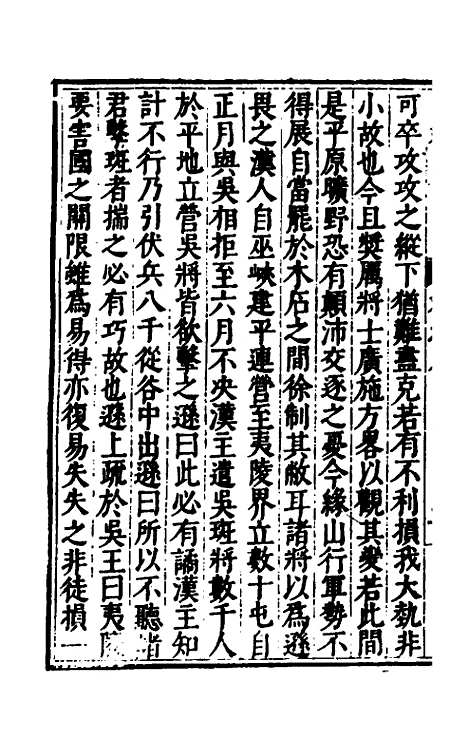 可卒攻攻之縱下猶難盡克若有不利損我大埶非
小故也今且奬厲將士廣施方畧以觀其變若此間
是平原曠野恐有顛沛交逐之憂今緣山行軍勢不
得展自當罷於木石之間徐制其敝耳諸將以爲遜
畏之漢人自巫峽建平連營至夷陵界立數十屯自
正月與吳相拒至六月不央漢主遣吳班將數千人
於平地立營吳將皆欲擊之遜曰此必有譎漢主知
計不行乃引伏兵八千從谷中出遜曰所以不聽諸
君擊班者揣之必有巧故也遜上疏於吳王曰夷陵
要害國之關限雖爲易得亦復易失失之非徒損一